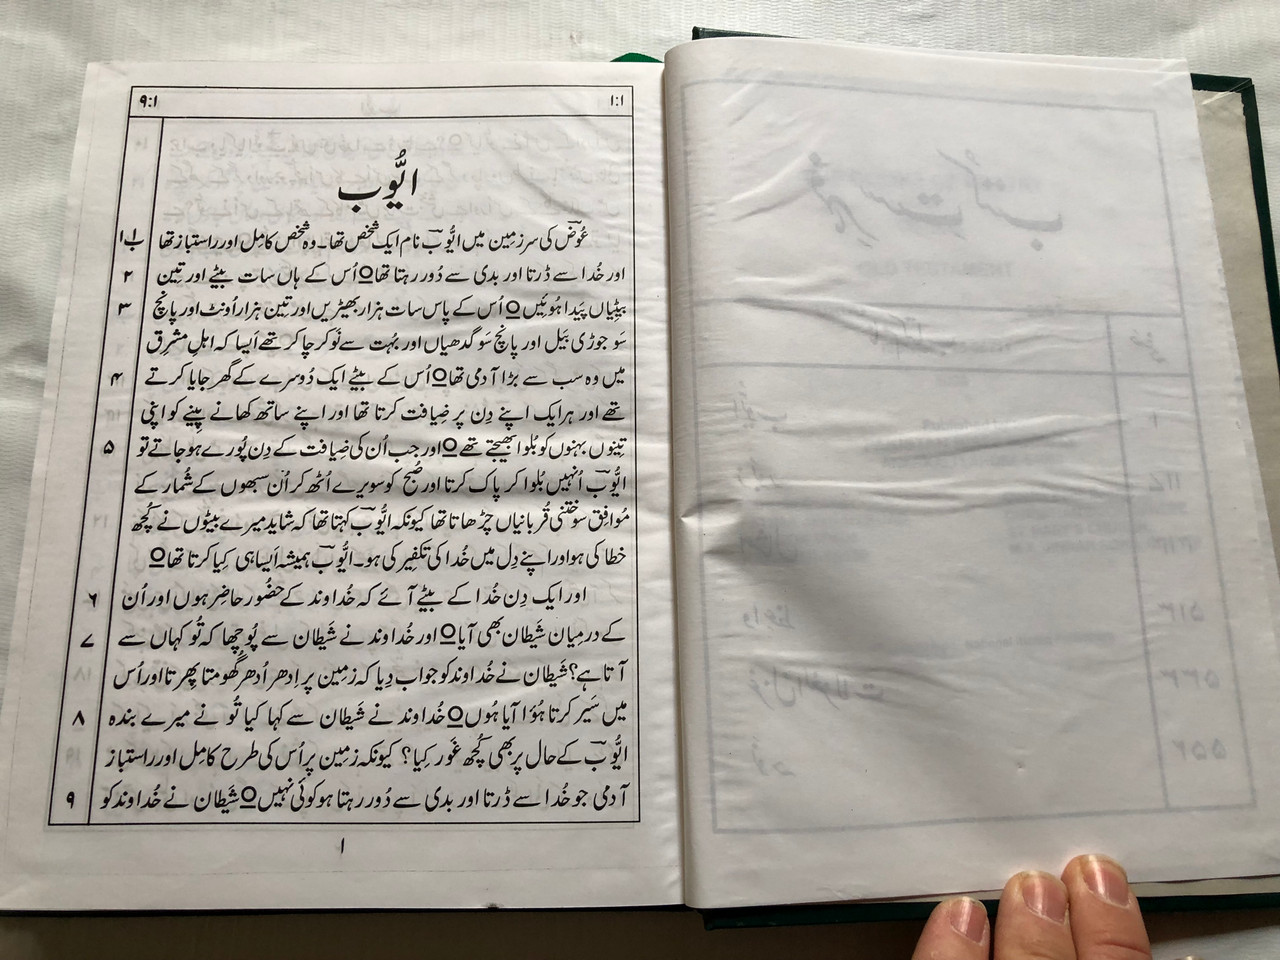 ۱:۱
۹:۱
ایُّوب
عُوض کی سرزمِین میں ایُّوب نام ایک شخص تھا۔ وہ شخص کامِل اور راستباز تھا باب ۱
اور خُدا سے ڈرتا اور بدی سے دُور رہتا تھا○ اُس کے ہاں سات بیٹے اور تِین ۲
بیٹِیاں پَیدا ہُوئِیں○ اُس کے پاس سات ہزار بھیڑیں اور تِین ہزار اُونٹ اور پانچ ۳
سَو جوڑی بَیل اور پانچ سَو گدھیاں اور بُہت سے نَوکر چاکر تھے اَیسا کہ اہلِ مشرِق
میں وہ سب سے بڑا آدمی تھا○ اُس کے بیٹے ایک دُوسرے کے گھر جایا کرتے ۴
تھے اور ہر ایک اپنے دِن پر ضِیافت کرتا تھا اور اپنے ساتھ کھانے پِینے کو اپنی
تِینوں بہنوں کو بُلوا بھیجتے تھے○ اور جب اُن کی ضِیافت کے دِن پُورے ہو جاتے تو ۵
ایُّوب اُنہیں بُلوا کر پاک کرتا اور صُبح کو سویرے اُٹھ کر اُن سبھوں کے شُمار کے
مُوافِق سوختنی قُربانیاں چڑھاتا تھا کیونکہ ایُّوب کہتا تھا کہ شاید میرے بیٹوں نے کُچھ
خطا کی ہو اور اپنے دِل میں خُدا کی تکفِیر کی ہو۔ ایُّوب ہمیشہ اَیسا ہی کِیا کرتا تھا○
اور ایک دِن خُدا کے بیٹے آئے کہ خُداوند کے حضُور حاضِر ہوں اور اُن ۶
کے درمِیان شَیطان بھی آیا○ اور خُداوند نے شَیطان سے پُوچھا کہ تُو کہاں سے ۷
آتا ہے؟ شَیطان نے خُداوند کو جواب دِیا کہ زمِین پر اِدھر اُدھر گُھومتا پِھرتا اور اُس
میں سَیر کرتا ہُؤا آیا ہُوں○ خُداوند نے شَیطان سے کہا کیا تُو نے میرے بندہ ۸
ایُّوب کے حال پر بھی کُچھ غَور کِیا؟ کیونکہ زمِین پر اُس کی طرح کامِل اور راستباز
آدمی جو خُدا سے ڈرتا اور بدی سے دُور رہتا ہو کوئی نہیں○ شَیطان نے خُداوند کو ۹
۱